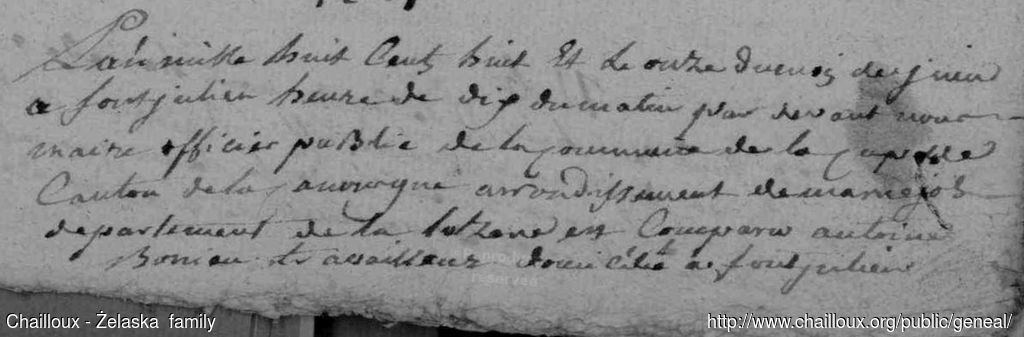 L'an mille huit Cent huit Et Le onze du mois de juin
a fontjulien heure de dix du matin par devant nous
maire officier publie de la commune de la capelle
Canton de la canourgue arrondissement de maruejols
departement de la lotzere est Comparu antoine
travailleur domicilié a fontjulien
Chailloux - Żelaska family
http://www.chailloux.org/public/geneal/